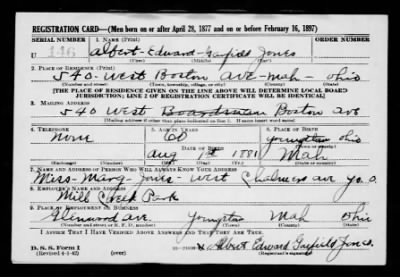 REGISTRATION CARD—(Men born on or after April 28, 1877 and on or before February 16, 1897)
SERIAL NUMBER 1. NAME (Print)
U 116 Albert - Edward - Garfield Jones
(First) (Middle) (Last)
2. PLACE OF RESIDENCE (Print)
540 - West Boston Ave - Mah - Ohio
(Number and street) (Town, township, village, or city) (County) (State)
[THE PLACE OF RESIDENCE GIVEN ON THE LINE ABOVE WILL DETERMINE LOCAL BOARD
JURISDICTION; LINE 2 OF REGISTRATION CERTIFICATE WILL BE IDENTICAL]
3. MAILING ADDRESS
540 West Boardman Boston Ave
[Mailing address if other than place indicated on line 2. If same insert word same]
4. TELEPHONE 5. AGE IN YEARS 6. PLACE OF BIRTH
None 60 Youngstown Ohio
DATE OF BIRTH
Aug 1st 1881 Mah
(Exchange) (Number) (Mo.) (Day) (Yr.) (State or country)
7. NAME AND ADDRESS OF PERSON WHO WILL ALWAYS KNOW YOUR ADDRESS
Miss - Marg - Jones - West Chalmers ave yo. O
8. EMPLOYER'S NAME AND ADDRESS
Mill Creek Park
9. PLACE OF EMPLOYMENT OR BUSINESS
Glenwood Ave. Youngstown Mah Ohio
(Number and street or R. F. D. number) (Town) (County) (State)
I AFFIRM THAT I HAVE VERIFIED ABOVE ANSWERS AND THAT THEY ARE TRUE.
D. S. S. Form 1
(Revised 4-1-42) (over)
Albert Edward Garfield Jones.
(Registrant's signature)